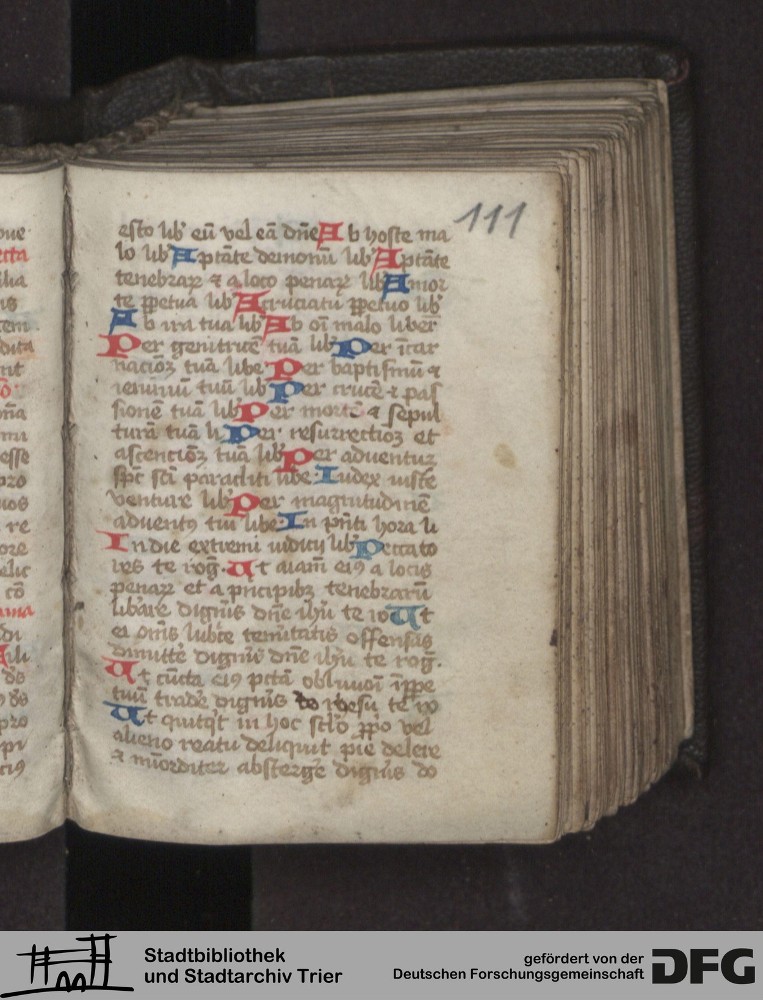 111
esto lib̕ eū vel eā dn̄e A b hoste ma
lo lib̕ A ptāte demonū lib̕ A ptāte
tenebraꝝ ⁊ a loco penaꝝ lib̕ A mor
te ꝑpetua lib̕ A cruciatu ꝑpetuo lib̕
A b ira tua lib̕ A b oī malo liber
P er genitricē tuā lib̕ P er īcar
nacioꝫ tuā libe P er baptismū ⁊
ieiuniū tuū lib̕ P er crucē ⁊ pas
sionē tuā lib̕ P er mortē ⁊ sepul
turā tuā li P er resurrectioꝫ et
ascencioꝫ tuā lib̕ P er adventuꝫ
sp̄c sc̄i paracliti libe I udex iuste
venture lib̕ P er magnitudinē
adventꝯ tui libe I n pn̄ti hora li
I n die extremi iudicij lib̕ P eccato
res te rog̅ U t aīam eiꝯ a locis
penaꝝ et a pricipibꝫ tenebrarū
libāre digneris dn̄e ih̄u te ro U t
ei om̄s lubrice temitatis offensas
dimittē dign̕is dn̄e ih̄u te rog̅.
U t cūcta eiꝯ pctā oblivioī īꝑpe
tuū tradē digneris do ihesu te ro
U t quitq̕t in hoc scl̄o ꝓpo vel
alieno reatu deliquit pie delere
⁊ absterge digneris do
Stadtbibliothek
und Stadtarchiv Trier
gefördert von der
Deutschen Forschungsgemeinschaft
DFG